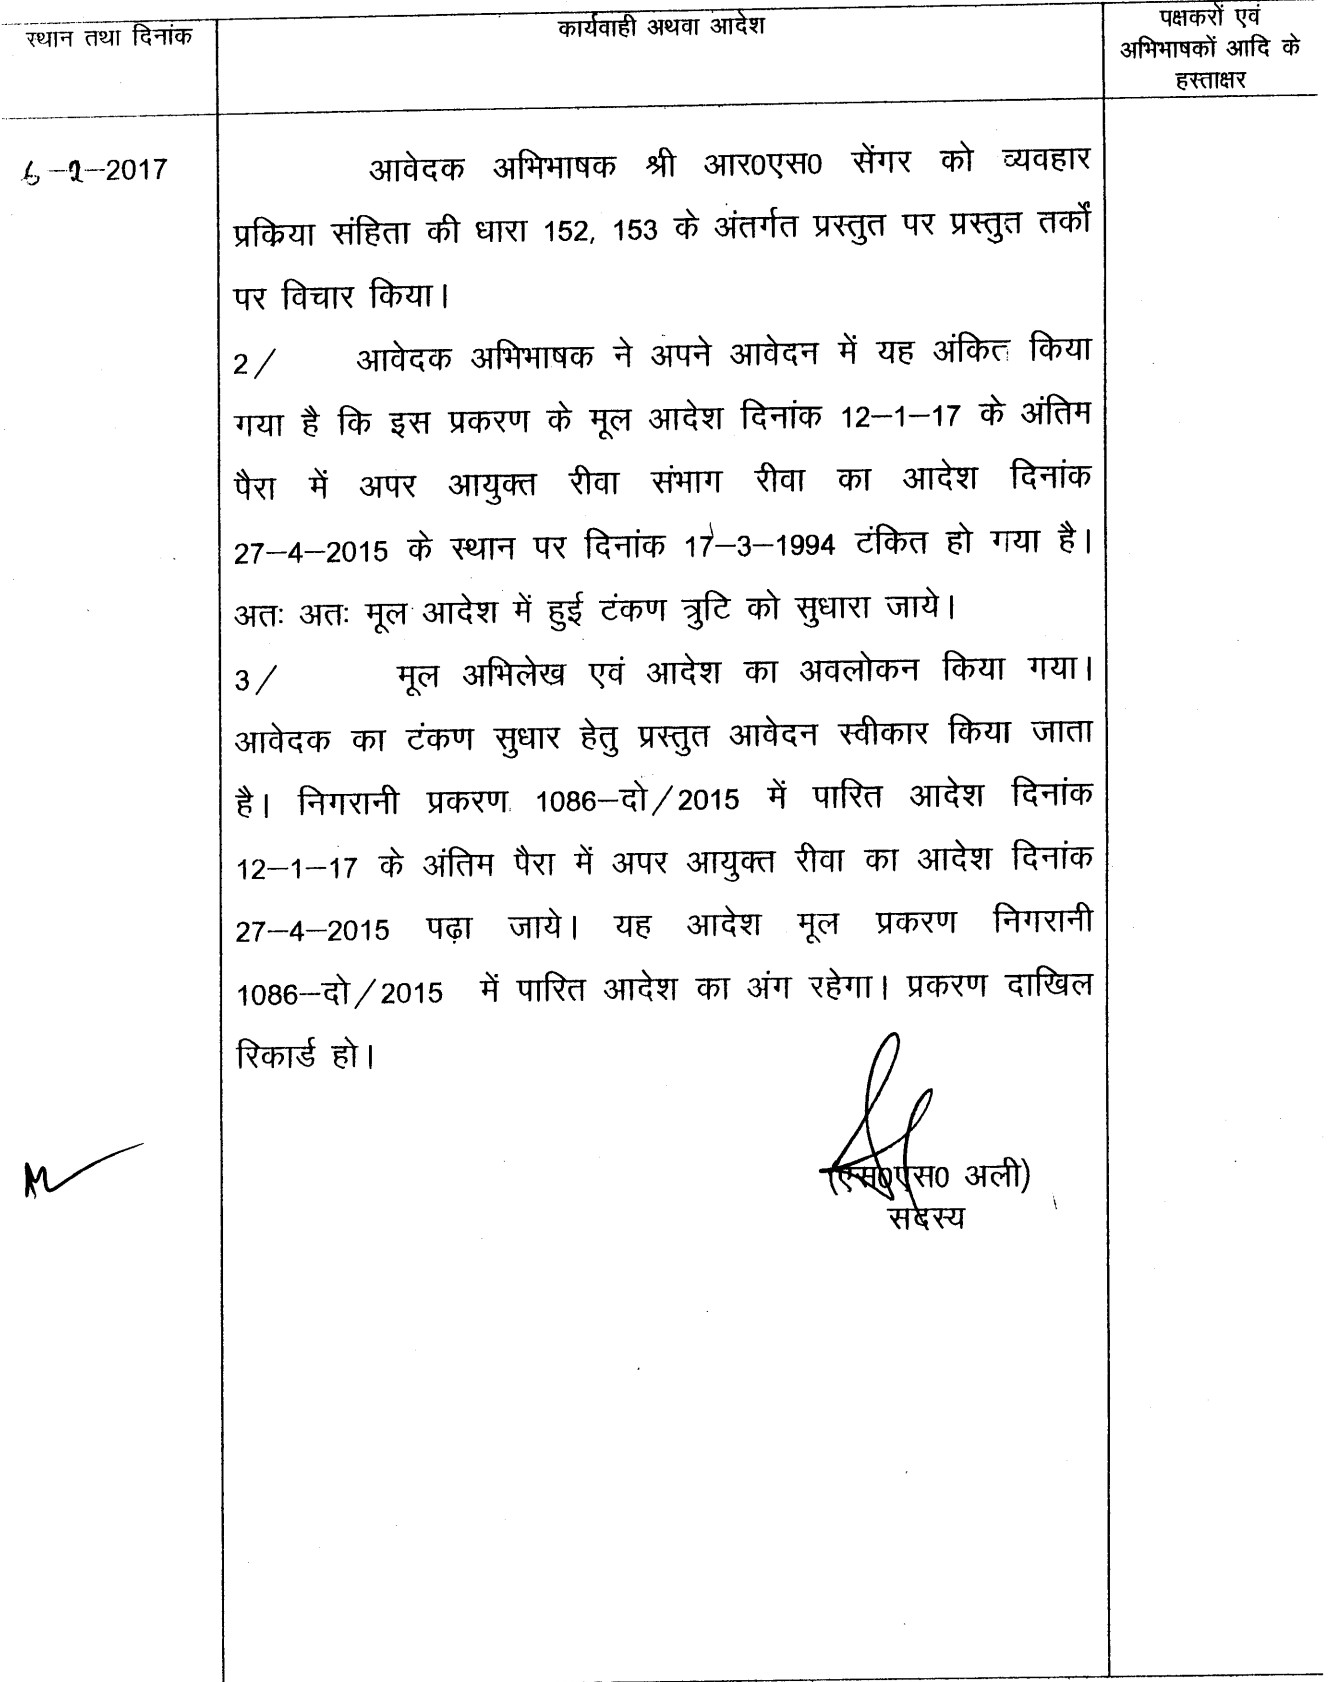 स्थान तथा दिनांक
कार्यवाही अथवा आदेश
पक्षकरों एवं
अभिभाषकों आदि के
हस्ताक्षर
6-2-2017
आवेदक अभिभाषक श्री आर0एस0 सेंगर को व्यवहार
प्रकिया संहिता की धारा 152, 153 के अंतर्गत प्रस्तुत पर प्रस्तुत तर्कों
पर विचार किया।
2/ आवेदक अभिभाषक ने अपने आवेदन में यह अंकित किया
गया है कि इस प्रकरण के मूल आदेश दिनांक 12-1-17 के अंतिम
पैरा में अपर आयुक्त रीवा संभाग रीवा का आदेश दिनांक
27-4-2015 के स्थान पर दिनांक 17-3-1994 टंकित हो गया है।
अतः अतः मूल आदेश में हुई टंकण त्रुटि को सुधारा जाये।
3/ मूल अभिलेख एवं आदेश का अवलोकन किया गया।
आवेदक का टंकण सुधार हेतु प्रस्तुत आवेदन स्वीकार किया जाता
है। निगरानी प्रकरण 1086-दो/2015 में पारित आदेश दिनांक
12-1-17 के अंतिम पैरा में अपर आयुक्त रीवा का आदेश दिनांक
27-4-2015 पढ़ा जाये। यह आदेश मूल प्रकरण निगरानी
1086-दो/2015 में पारित आदेश का अंग रहेगा। प्रकरण दाखिल
रिकार्ड हो।
(एस0एस0 अली)
सदस्य